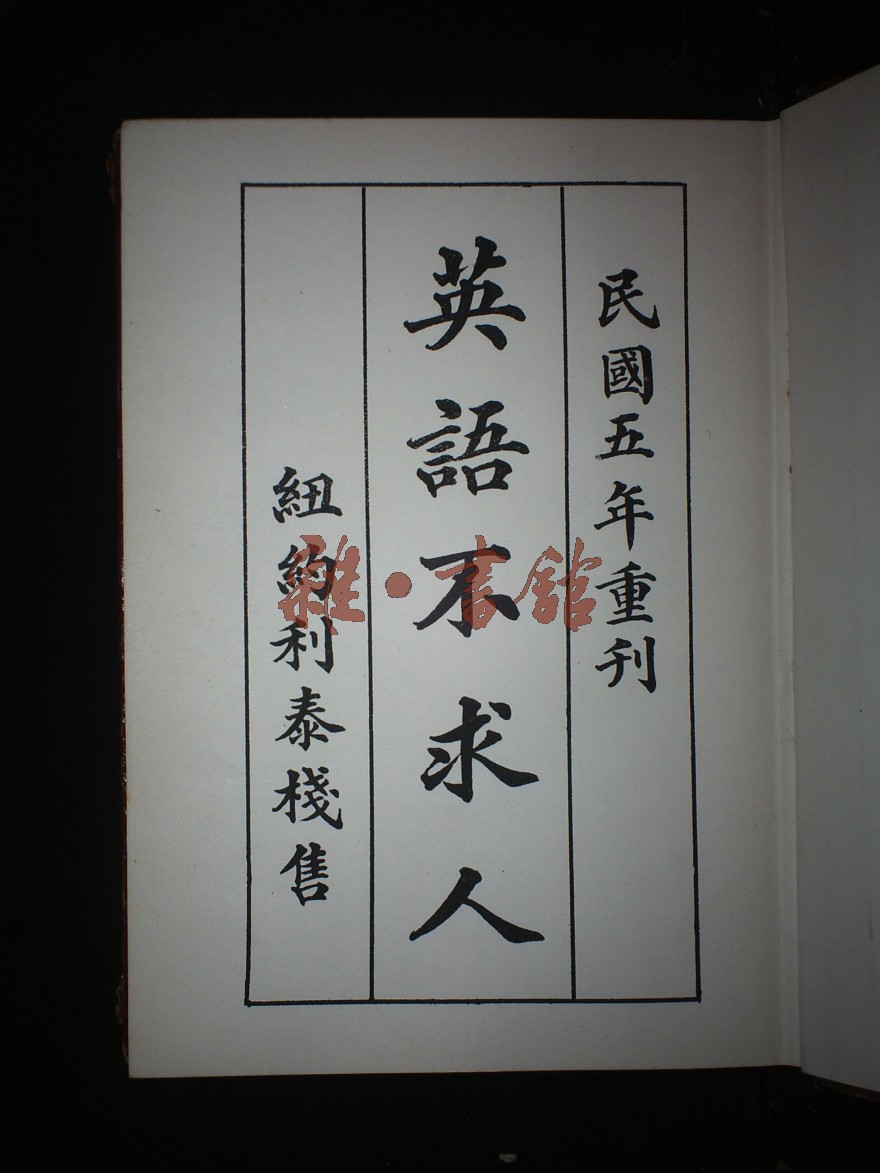 民國五年重刊
英語不求人
紐約利泰棧售
雜·書館